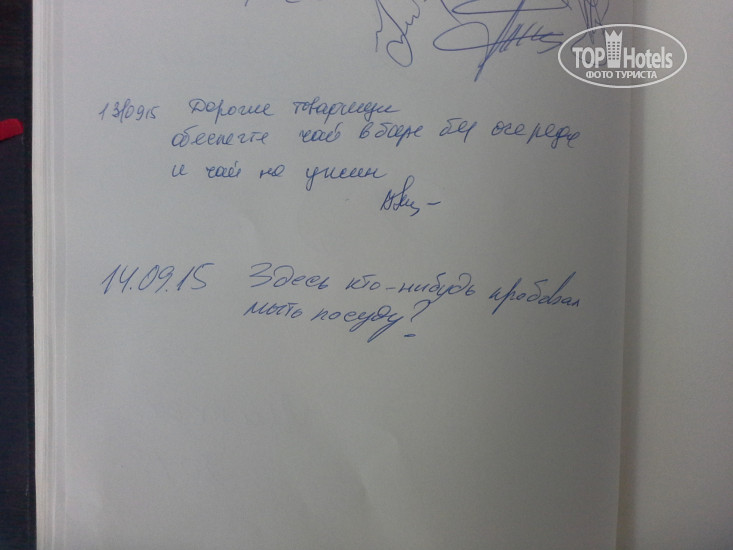 TOP Hotels
ФОТО ТУРИСТА
13/09.15 Дорогие товарищи
обеспечте чай в баре без очереди
и чай на ужин
14.09.15 Здесь кто-нибудь пробовал
мыть посуду?